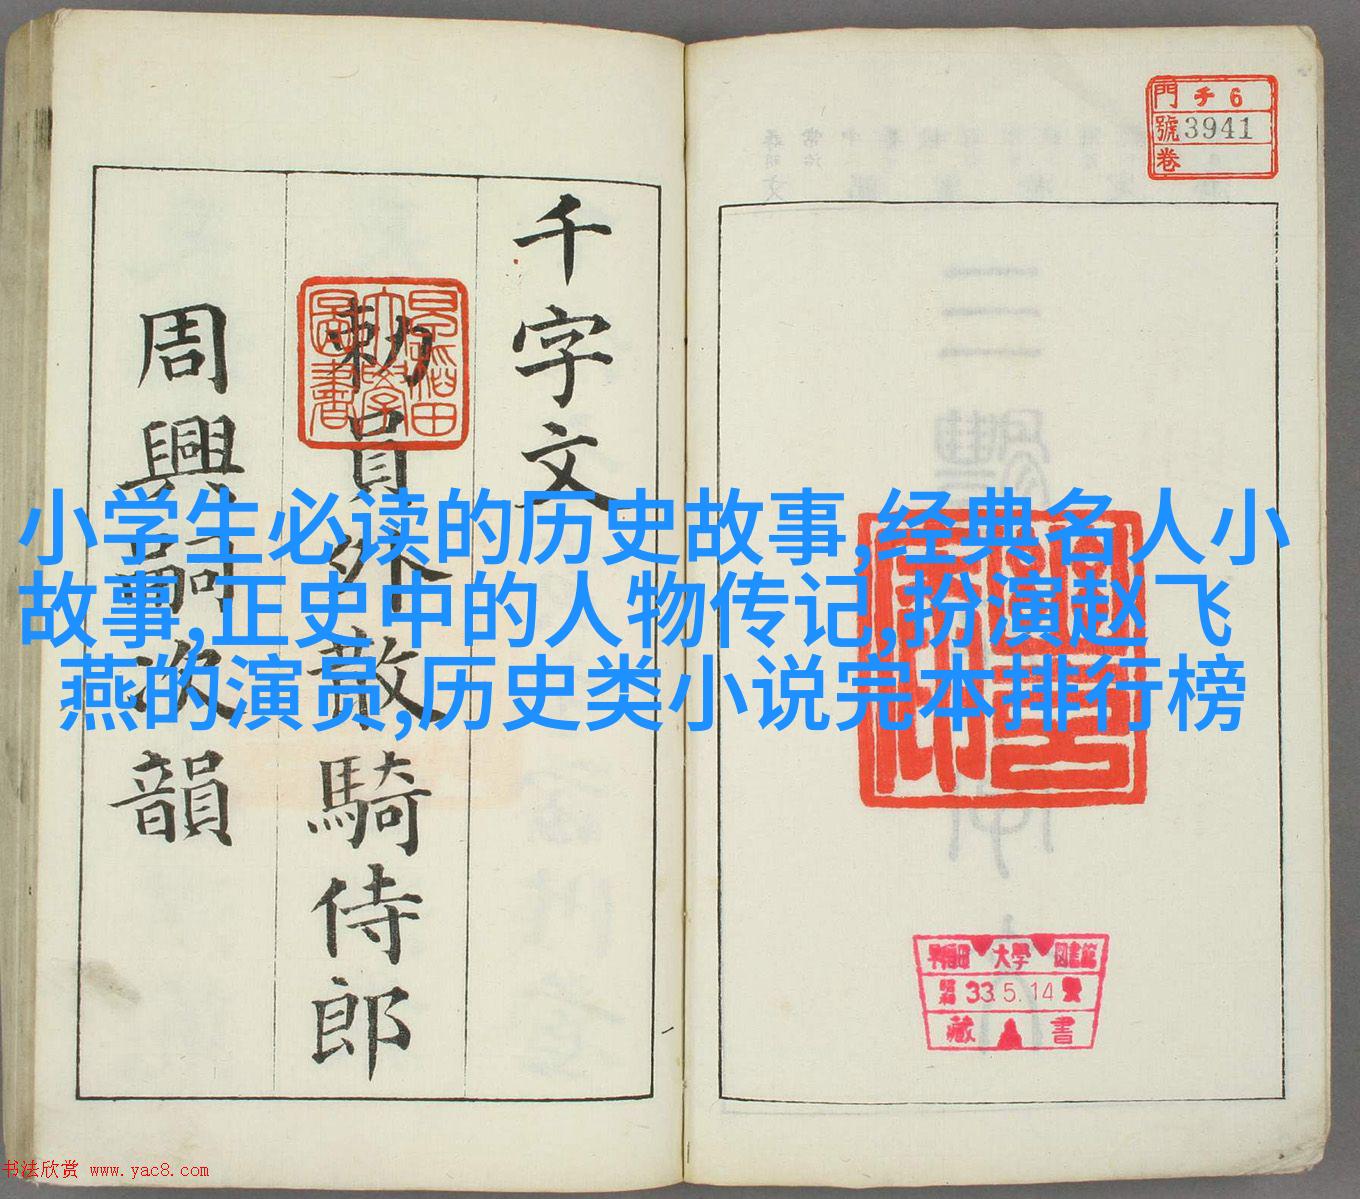 千字文
勅員外散騎侍郎
周興嗣次韻
早稲田
大學
圖書
門 チ 6
號 3941
卷
小学生必读的历史故事,经典名人小
故事,正史中的人物传记,扮演赵飞
燕的演员,历史类小说完本排行榜
早稲田 大學 図書館
昭和 33.5.14
藏 書
书法欣赏 www.yac8.com